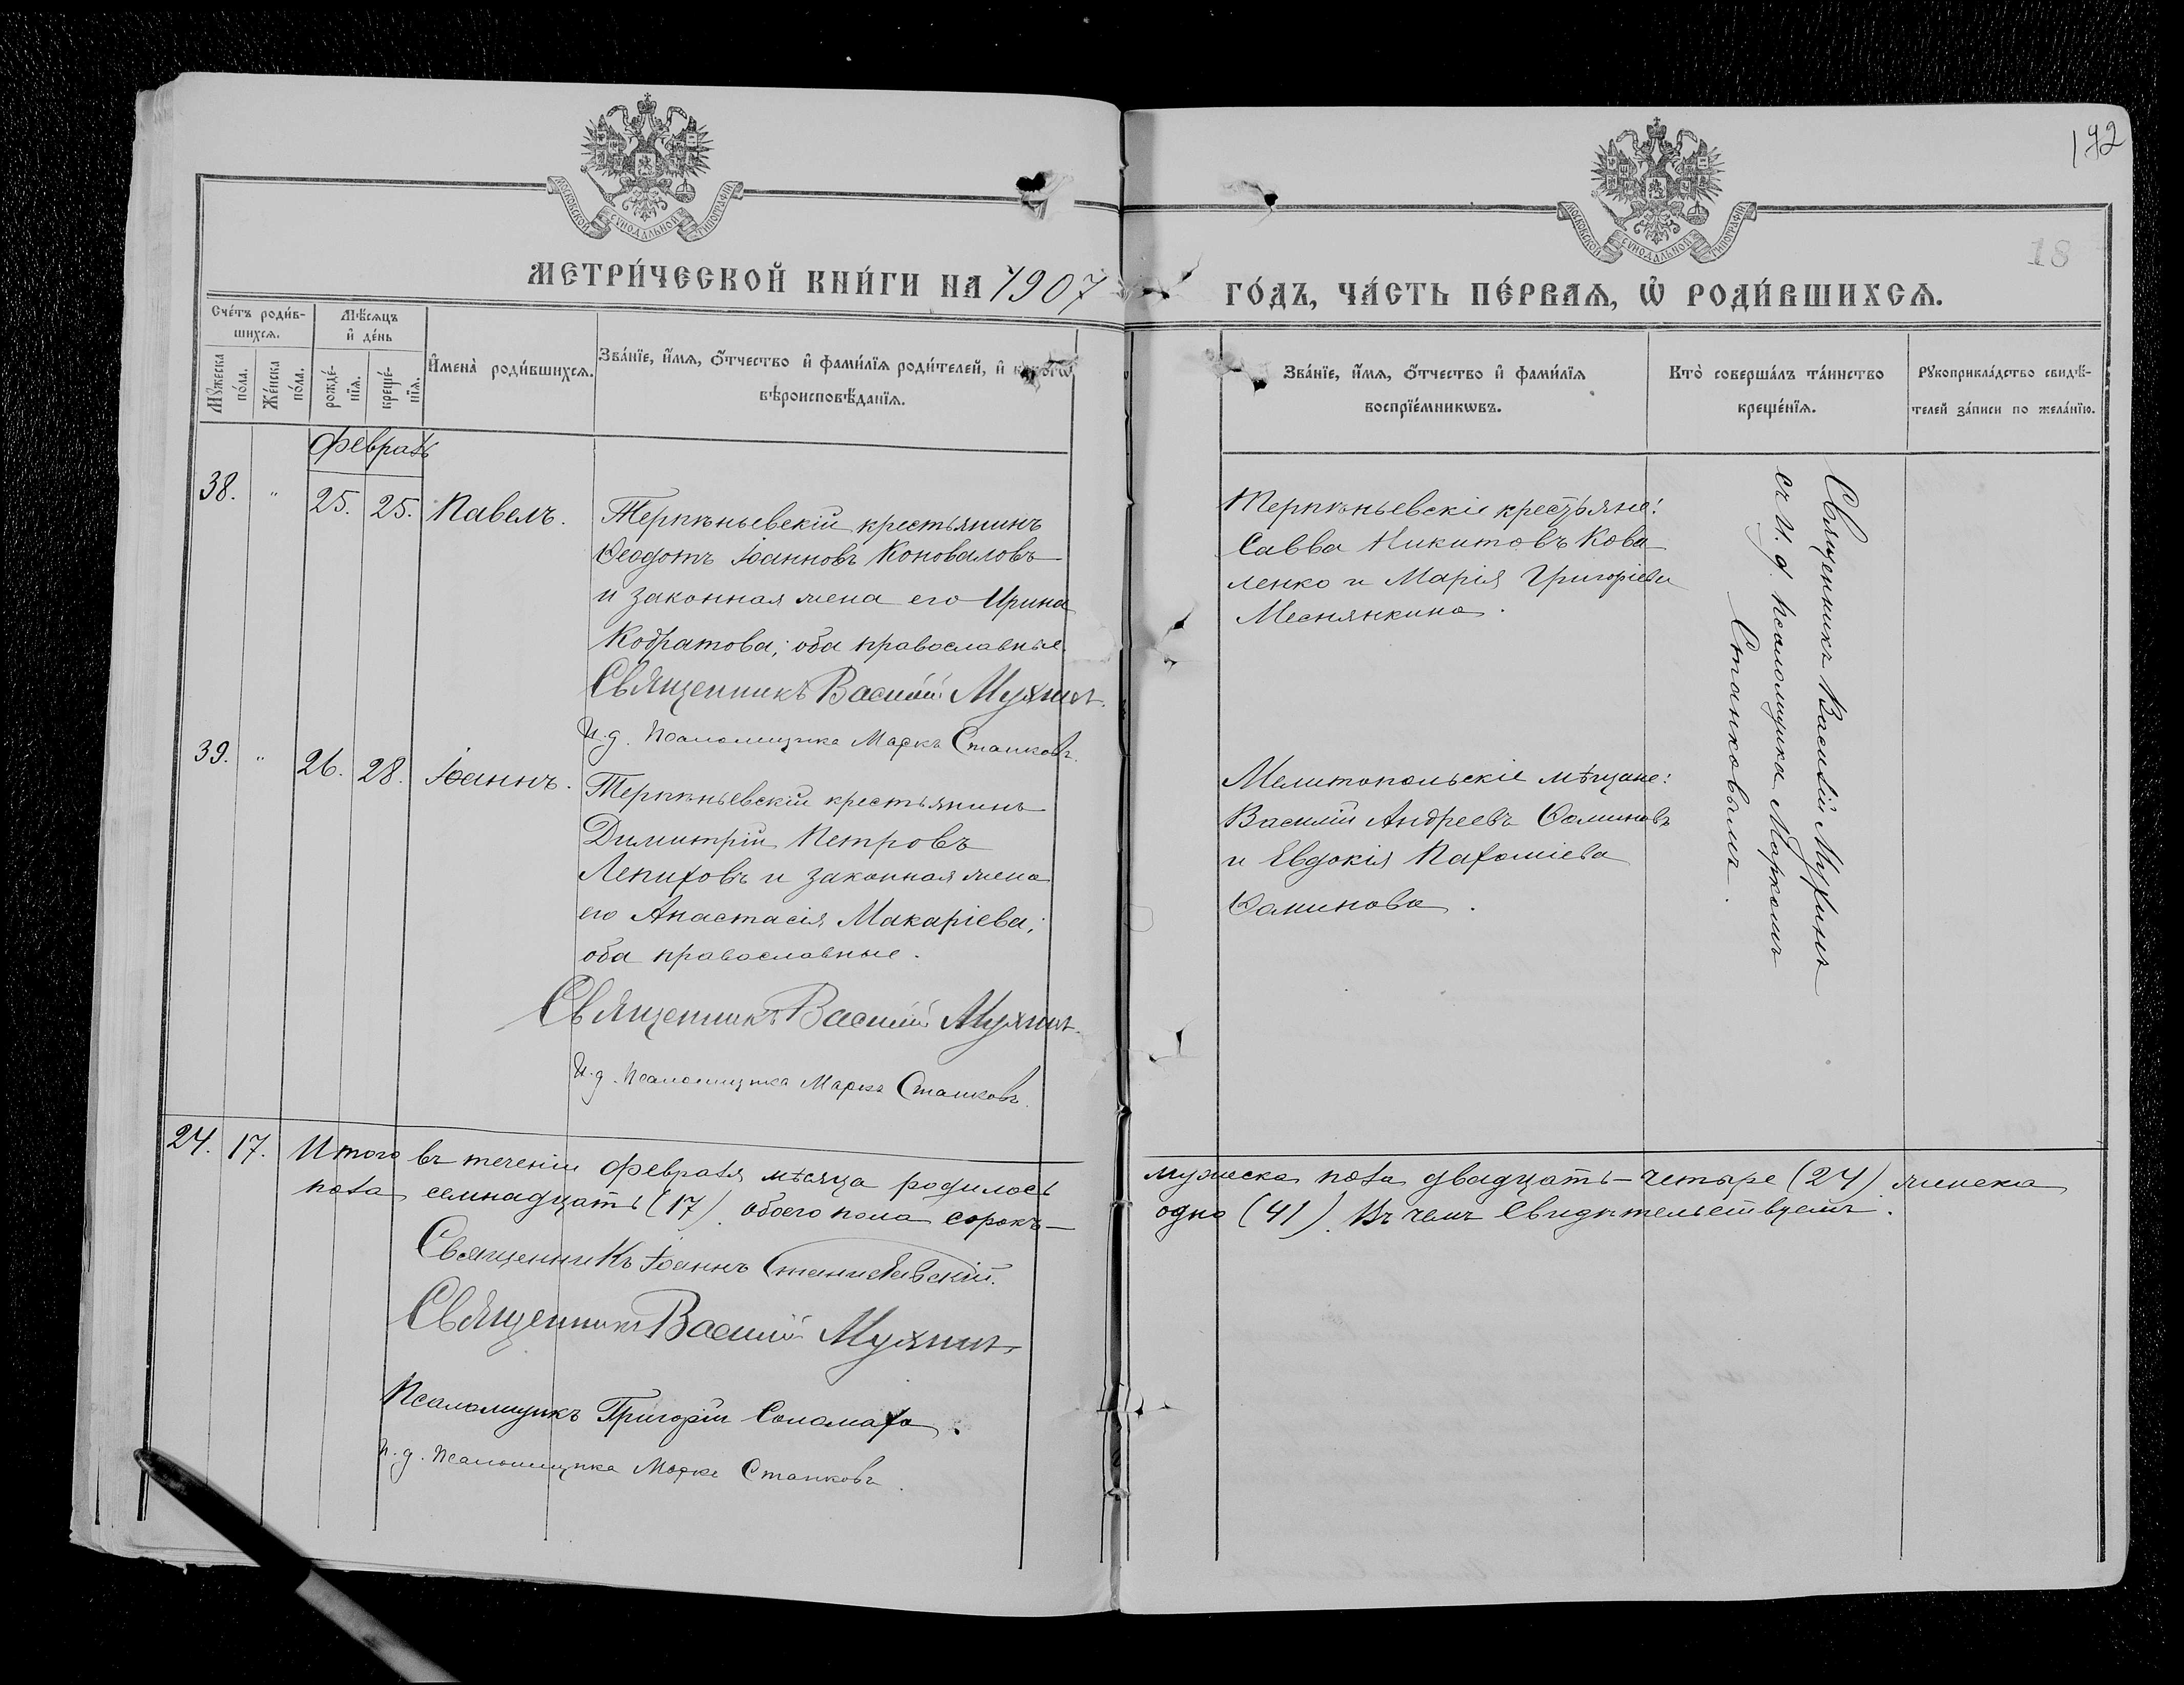 192
18
МОСКОВСКОЙ СѴНОДАЛЬНОЙ ТИПОГРАФІИ
МОСКОВСКОЙ СѴНОДАЛЬНОЙ ТИПОГРАФІИ
МЕТРИ́ЧЕСКОЙ КНИ́ГИ НА 1907
ГО́ДЪ, ЧА́СТЬ ПЕ́РВАѦ, Ѡ҆ РОДИ́ВШИХСѦ.
Сче́тъ роди́в-
шихсѧ.
Мꙋ́жеска
по́ла.
Же́нска
по́ла.
Мѣ́сѧцъ
и҆ де́нь
рожде́-
нїѧ.
креще́-
нїѧ.
И҆мена̀ роди́вшихсѧ.
Зва́нїе, и҆́мѧ, ѻ҆́тчество и҆ фами́лїѧ роди́телей, и҆ какогѡ
вѣроисповѣ́данїѧ.
Зва́нїе, и҆́мѧ, ѻ҆́тчество и҆ фами́лїѧ
воспрїе́мникѡвъ.
Кто̀ соверша́лъ та́инство
креще́нїѧ.
Рꙋкоприкла́дство свидѣ́-
телей за́писи по жела́нїю.
Февраль
38. " 25. 25. Павелъ.
Терпѣньевскій крестьянинъ
Ѳеодотъ Іоанновъ Коноваловъ
и законная жена его Ирина
Кодратова; оба православные.
Священникъ Василій Мухинъ.
И.д. Псаломщика Маркъ Станковъ.
Терпѣньевскіе крестьяне:
Савва Никитовъ Кова
ленко и Марія Григоріева
Меснянкина.
39. " 26. 28. Іоаннъ.
Терпѣньевскій крестьянинъ
Димитрій Петровъ
Лепиховъ и законная жена
его Анастасія Макаріева;
оба православные.
Священникъ Василій Мухинъ.
И.д. Псаломщика Маркъ Станковъ.
Мелитопольскіе мѣщане:
Василій Андреевъ Ѳоминовъ
и Евдокія Пахоміева
Ѳоминова.
Священникъ Василій Мухинъ
съ И. д. псаломщика Маркомъ
Станковымъ.
24. 17. Итого въ теченіи Февраля мѣсяца родилось
мужеска пола двадцать-четыре (24) женска
пола семнадцать (17). обоего пола сорокъ-
одно (41). Въ чемъ свидѣтельствуемъ.
Священникъ Іоаннъ Станиславскій.
Священникъ Василій Мухинъ
Псаломщикъ Григорій Соломаха.
И.д. Псаломщика Маркъ Станковъ.